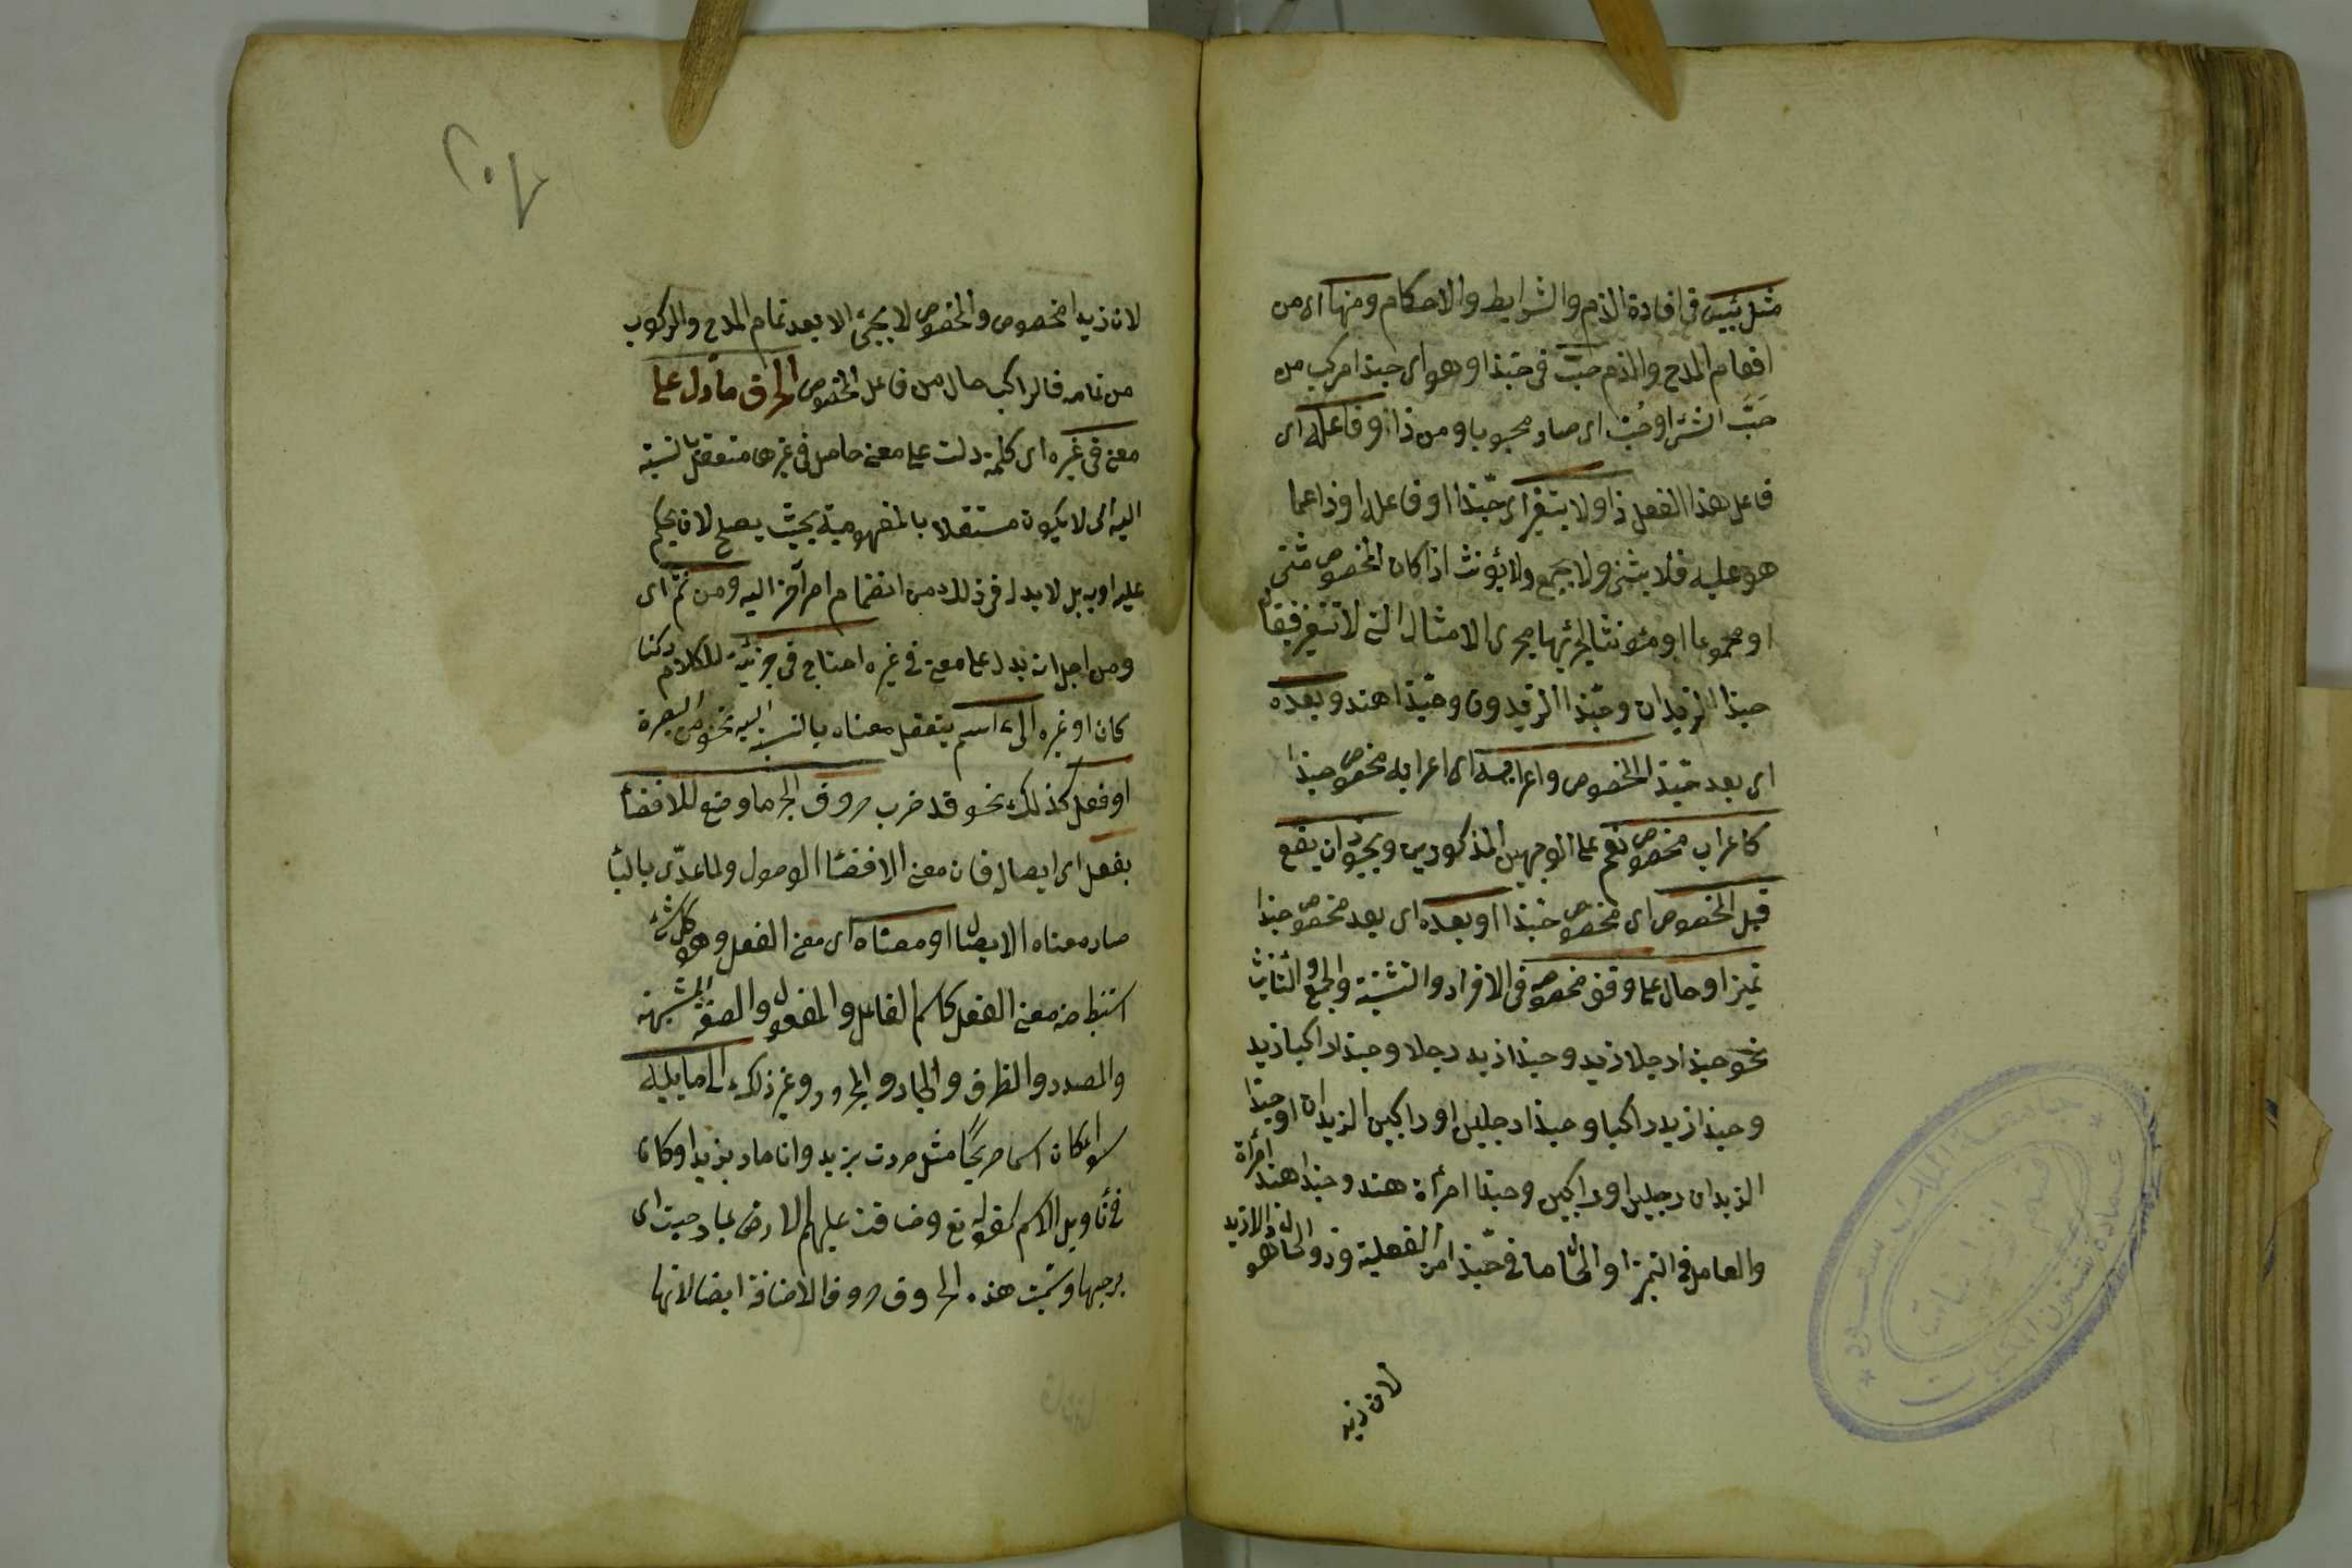 مثل بئس في افادة الذم والشرايط والاحكام ومنها اى من
افعال المدح والذم حبّ في حبّذا وهو اى حبذا مركب من
حَبَّ الشئ او حُبّ اى صار محبوبا ومن ذا وفاعله اى
فاعل هذا الفعل ذا ولا يتغير اى حبّذا او فاعله او ذا عما
هو عليه فلا يثنى ولا يجمع ولا يؤنث اذا كان المخصوص مثنى
او مجموعا او مؤنثا لجريها مجرى الامثال التى لا تتغير فيقال
حبذا الزيدان وحبّذا الزيدون وحبّذا هند وبعده
اى بعد حبّذا المخصوص واعرابه اى اعراب مخصوص حبذا
كاعراب مخصوص نعم على الوجهين المذكورين ويجوز ان يقع
قبل المخصوص اى مخصوص حبّذا او بعده اى بعد مخصوص حبذا
تميز او حال على وفق مخصوصه في الافراد والتثنية والجمع والتأنيث
نحو حبذا رجلا زيد وحبذا زيد رجلا وحبذا راكبا زيد
وحبذا زيد راكبا وحبذا رجلين او راكبين الزيدان او حبذا
الزيدان رجلين او راكبين وحبذا امرأة هند وحبذا هند امرأة
والعامل في التميز او الحال ما في حبّذا من الفعلية وذو الحال هو ذا لا زيد
لان زيد
٢٠٧
لان زيدا مخصوص والمخصوص لا يجئ الا بعد تمام المدح والركوب
من تمامه فالراكب حال من فاعل لا المخصوص الحرف ما دل على
معنى في غيره اى كلمة دلت على معنى حاصل في غيرها متعقل بالنسبة
اليه اى لا يكون مستقلا بالمفهومية بحيث يصلح لان يحكم
عليه او به بل لا بد له في ذلك من انضمام امر آخر اليه ومن ثم اى
ومن اجل انه يدل على معنى في غيره احتاج في جزئيته للكلام ركنا
كان او غيره الى اسم يتعقل معناه بالنسبة اليه نحو من البصرة
او فعل كذلك نحو قد ضرب حروف الجر ما وضع للافضاء
بفعل اى ايصال فان معنى الافضاء الوصول ولما عدّى بالباء
صار معناه الايصال او معناه اى معنى الفعل وهو كل شئ
استنبط منه معنى الفعل كاسم الفاعل والمفعول والصفة المشبهة
والمصدر والظرف والجار والمجرور وغير ذلك الى ما يليه
سواء كان اسما صريحًا مثل مررت بزيد وانا مار بزيد او كان
في تأويل الاسم كقوله تع وضاقت عليهم الارض بما رحبت اى
برحبها وسميت هذه الحروف حروف الاضافة ايضا لانها